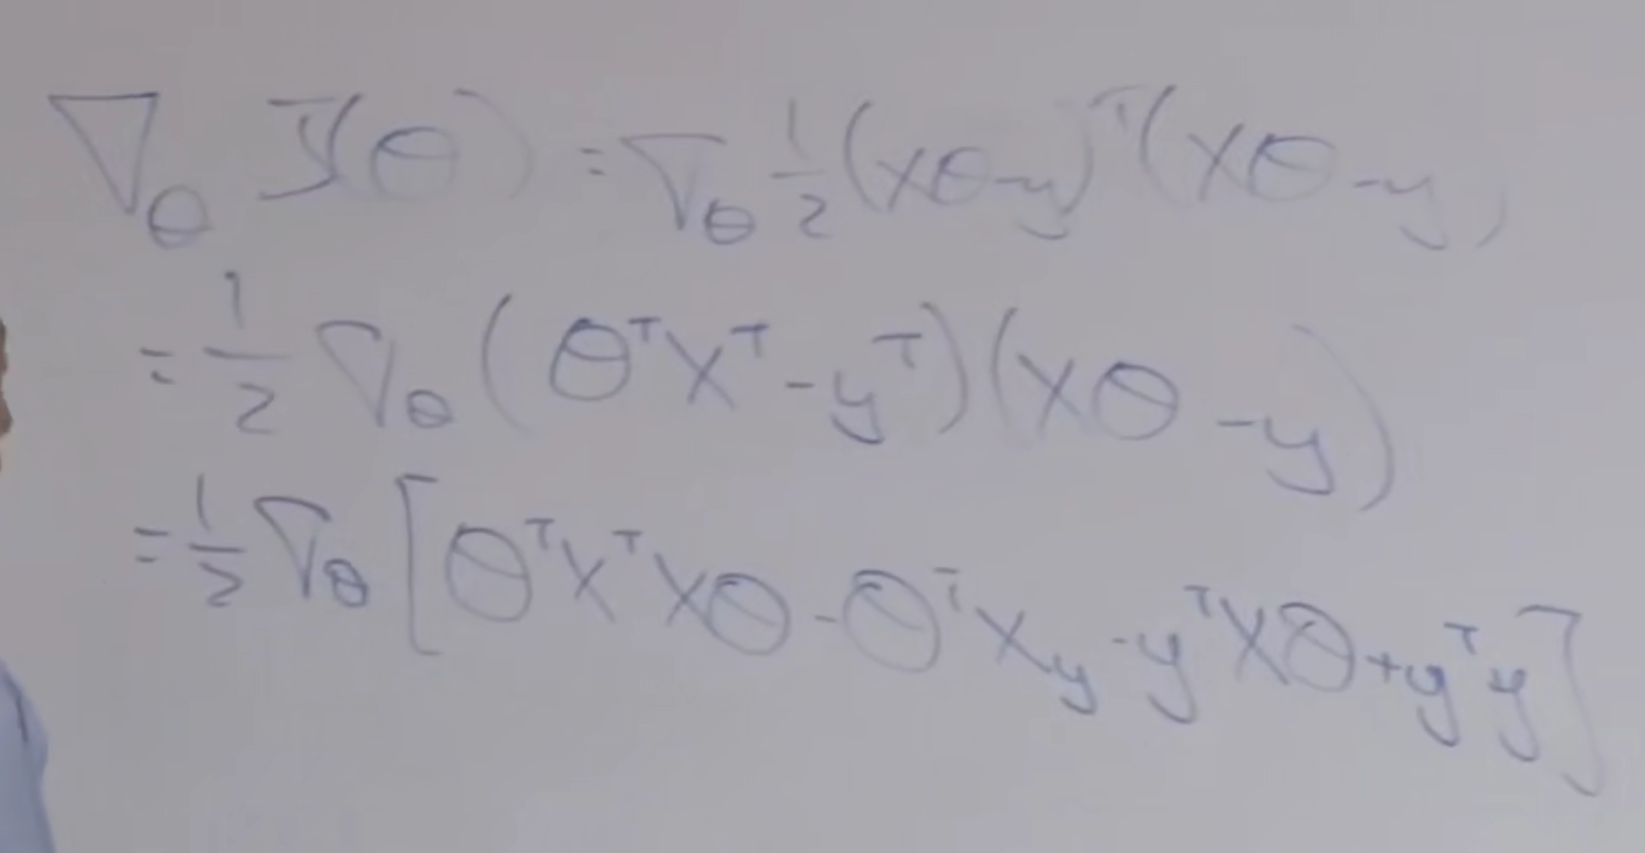 ∇_θ J(θ) = ∇_θ 1/2 (Xθ-y)^T (Xθ-y)
= 1/2 ∇_θ (θ^T X^T - y^T)(Xθ-y)
= 1/2 ∇_θ [θ^T X^T Xθ - θ^T Xy - y^T Xθ + y^T y]